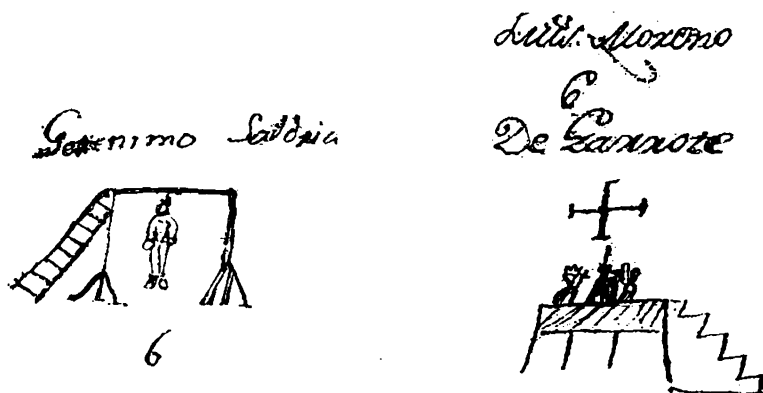 Geronimo
6
Luis Moreno
6
De Garrote